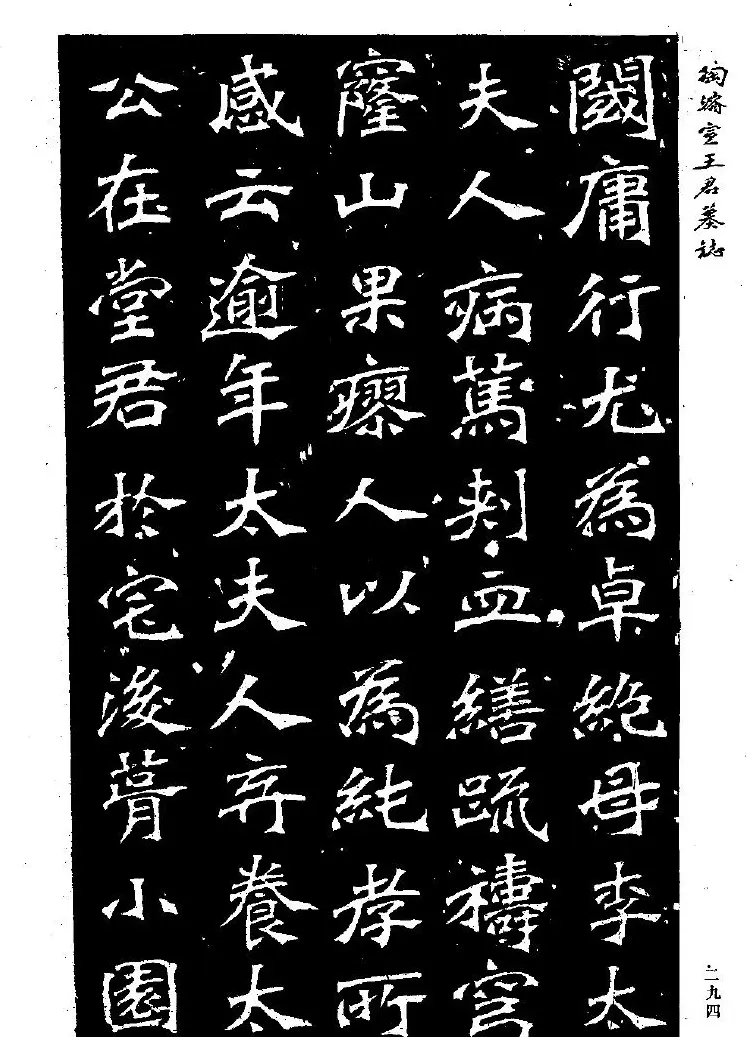 陶濬宣王君墓誌
閾庸行尤為卓絶母李太
夫人病篤刺血繕疏禱穹
窿山果瘳人以為純孝所
感云逾年太夫人弃養太
公在堂君於宅後葺小園
二九四